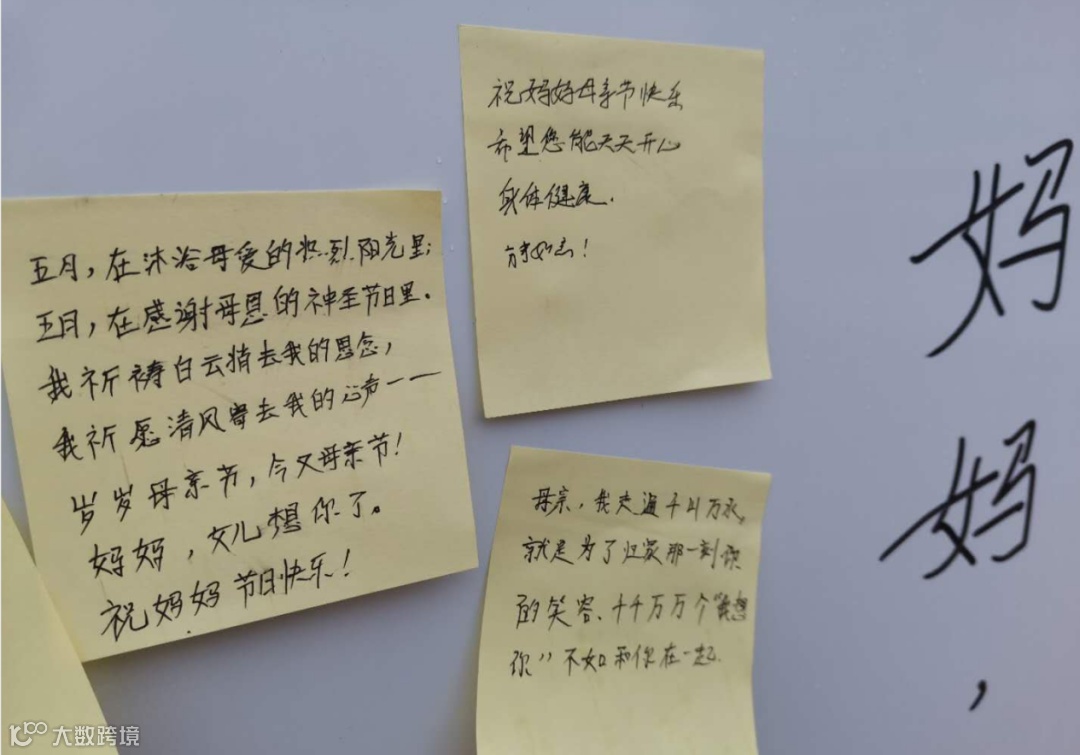 五月，在沐浴母爱的热烈阳光里；
五月，在感谢母恩的神圣节日里。
我祈祷白云捎去我的思念，
我祈愿清风寄去我的心声——
岁岁母亲节，今又母亲节！
妈妈，女儿想你了。
祝妈妈节日快乐！
祝妈妈母亲节快乐
希望您能天天开心
身体健康．
母亲，我走遍千山万水。
就是为了归家那一刻你
的笑容、千千万万个“我想
你”不如和你在一起.
妈
妈
，
大数跨境